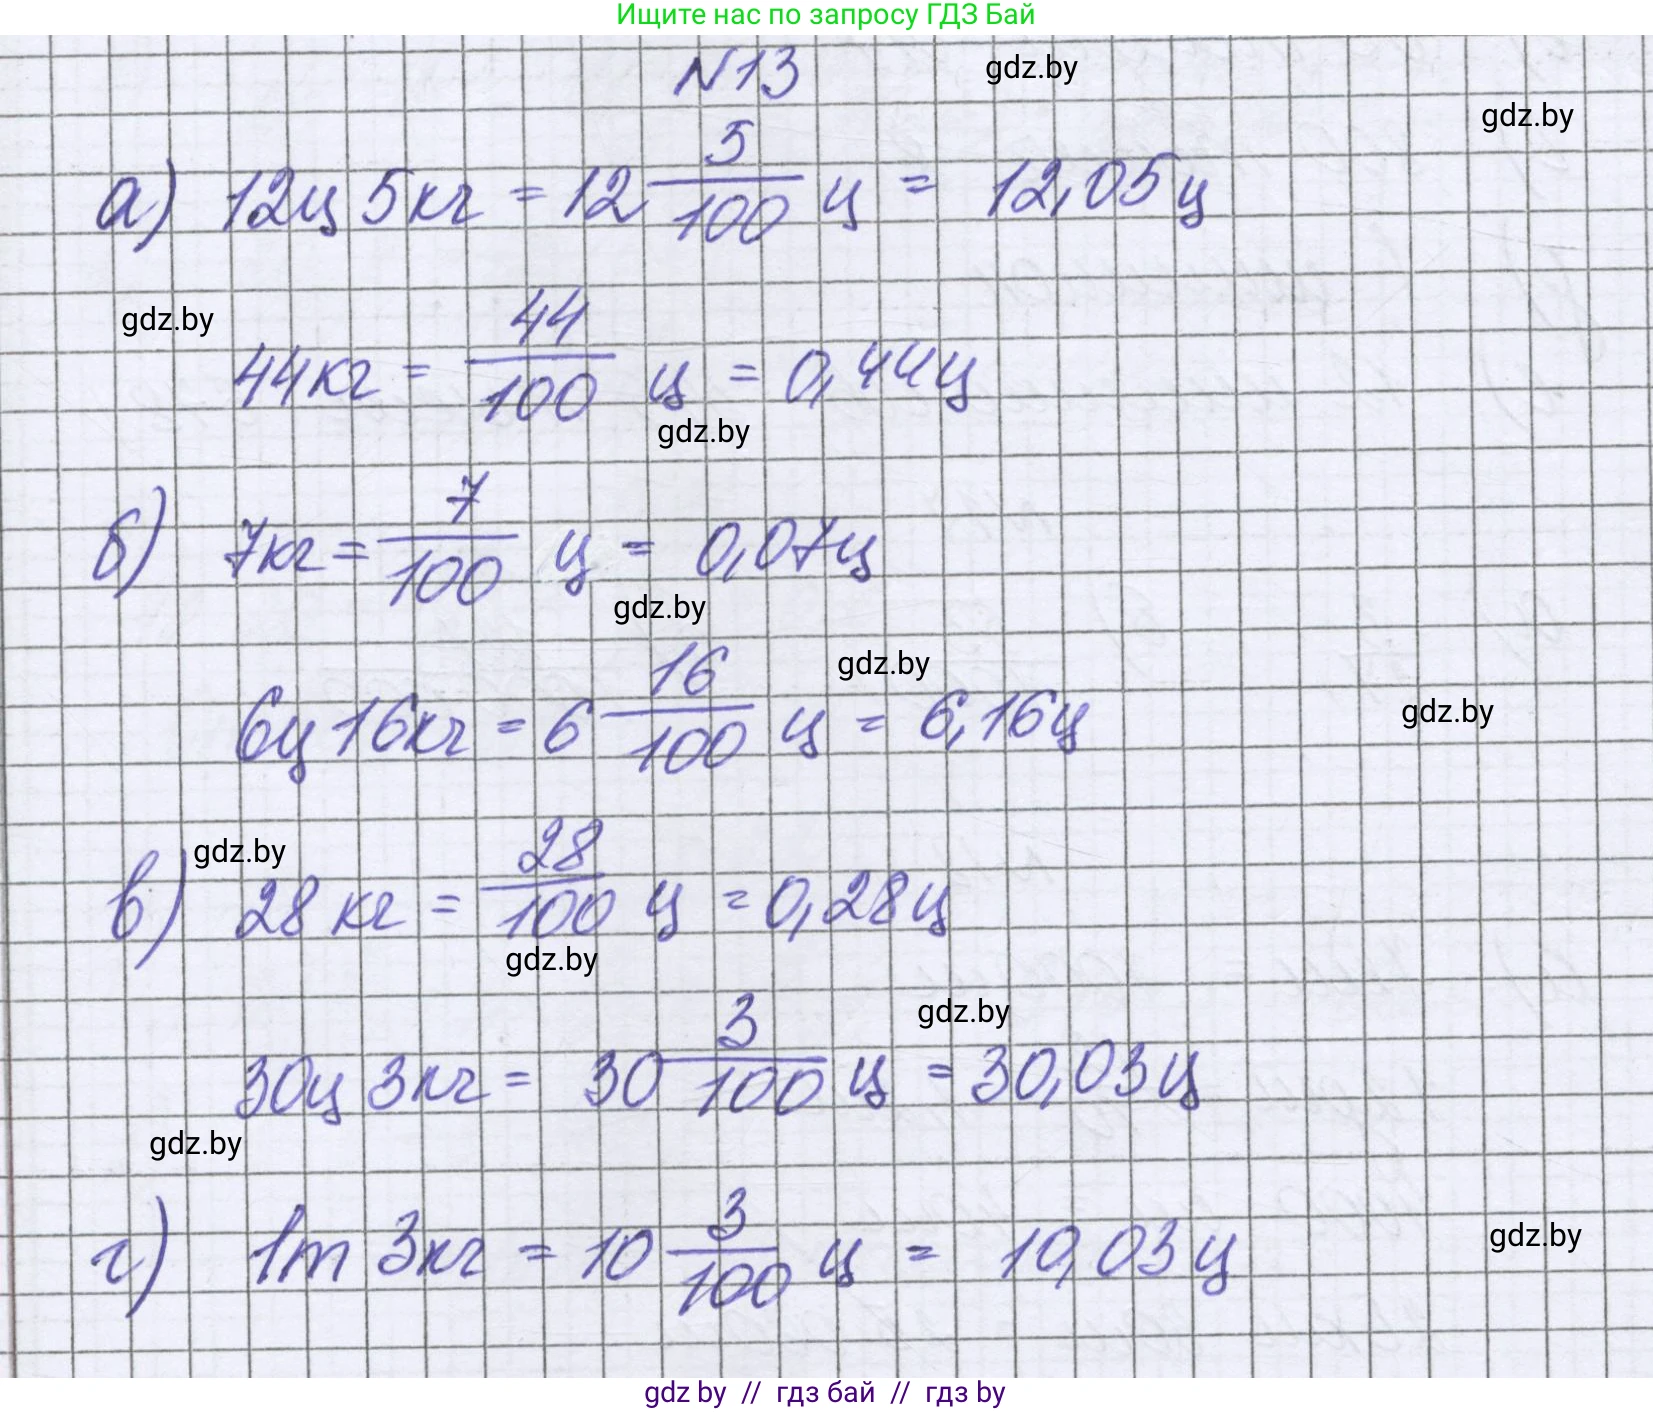 Ищите нас по запросу ГДЗ Бай
N13
gdz.by
gdz.by
а) 12ц 5кг = 12 5/100 ц = 12,05ц
gdz.by
44кг = 44/100 ц = 0,44ц
gdz.by
б) 7кг = 7/100 ц = 0,07ц
gdz.by
gdz.by
6ц 16кг = 6 16/100 ц = 6,16ц
gdz.by
gdz.by
в) 28 кг = 28/100 ц = 0,28ц
gdz.by
gdz.by
30ц 3кг = 30 3/100 ц = 30,03ц
gdz.by
г) 1т 3кг = 10 3/100 ц = 10,03ц
gdz.by
gdz by // гдз бай // гдз by